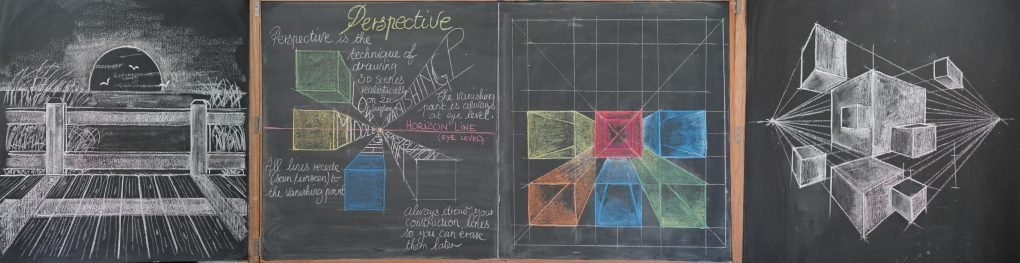 Perspective
Perspective is the
technique of
drawing
3D scenes
realistically
on 2D
VANISHING P
The vanishing
point is always
at eye level.
HORIZON LINE
(EYE LEVEL)
All lines recede
(seen/unseen) to
the vanishing point
Always draw your
construction lines
so you can erase
them later